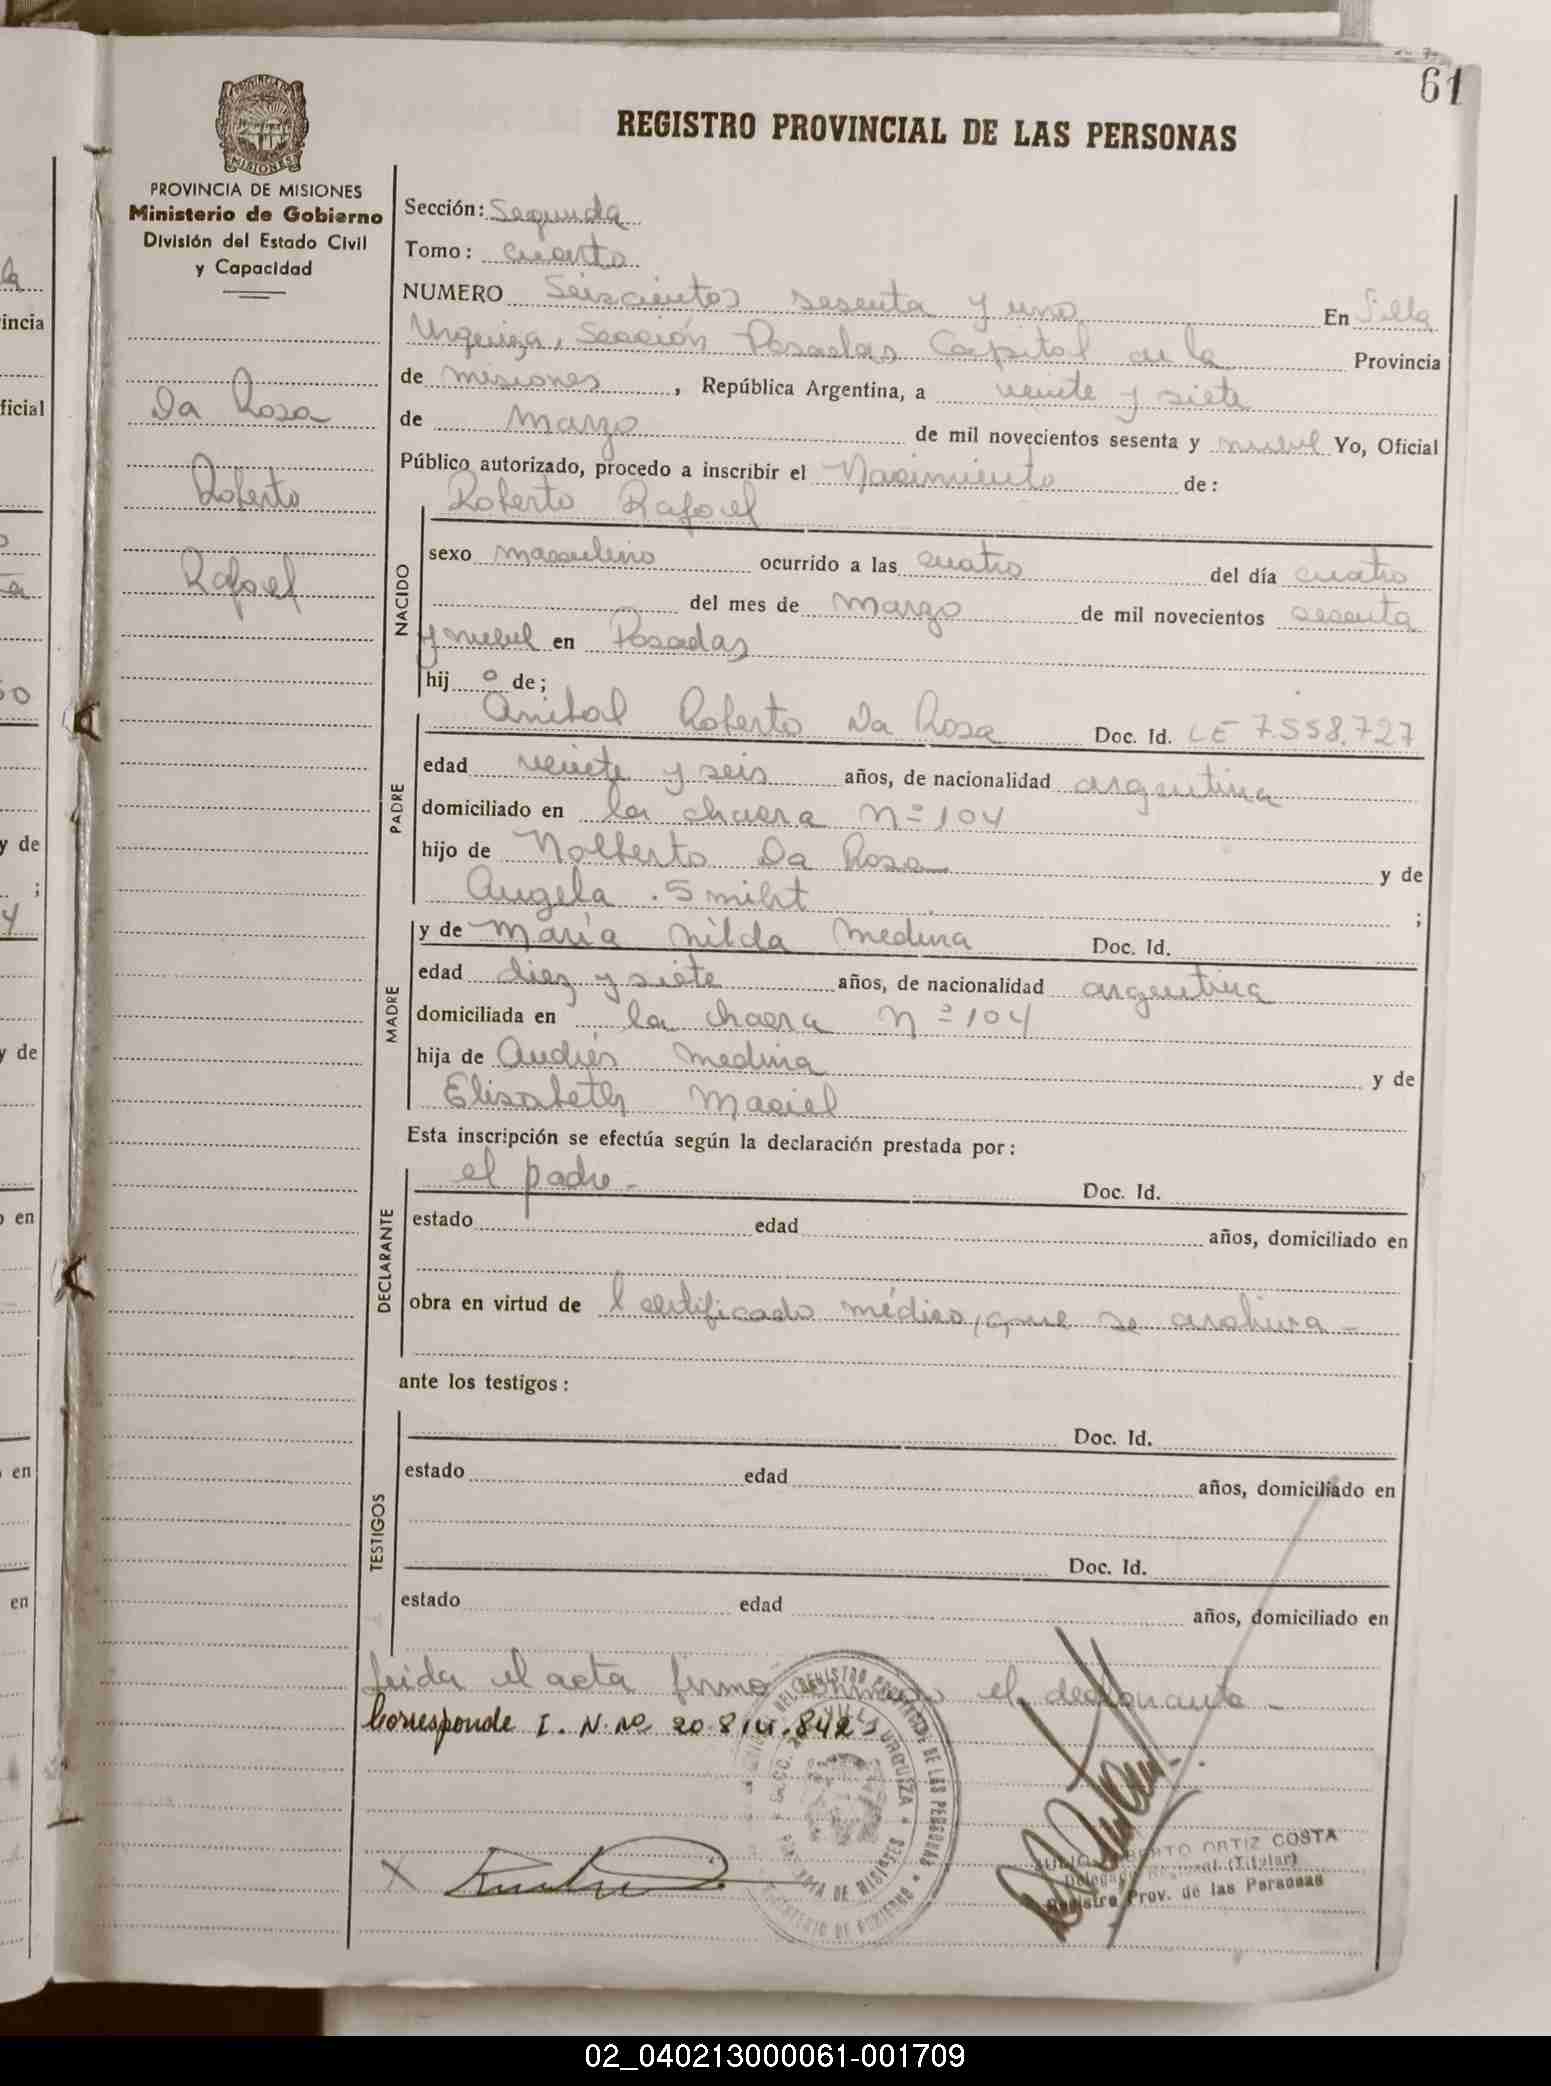 61
REGISTRO PROVINCIAL DE LAS PERSONAS
PROVINCIA DE MISIONES
Ministerio de Gobierno
División del Estado Civil
y Capacidad
Da Rosa
Roberto
Rafael
Sección: Segunda
Tomo: cuarto
NUMERO Seiscientos sesenta y uno En Villa
Urquiza, Sección Posadas Capital de la Provincia
de misiones, República Argentina, a veinte y siete
de marzo de mil novecientos sesenta y nueve Yo, Oficial
Público autorizado, procedo a inscribir el Nacimiento de:
Roberto Rafael
NACIDO
sexo masculino ocurrido a las cuatro del día cuatro
del mes de marzo de mil novecientos sesenta
y nueve en Posadas
hij o de;
PADRE
Anibal Roberto Da Rosa Doc. Id. LE 7.558.727
edad veinte y seis años, de nacionalidad argentina
domiciliado en la chacra Nº 104
hijo de Nolberto Da Rosa y de
Angela Smiht ;
MADRE
y de María Nilda Medina Doc. Id.
edad diez y siete años, de nacionalidad argentina
domiciliada en la chacra Nº 104
hija de Andrés Medina y de
Elisabeth Maciel
Esta inscripción se efectúa según la declaración prestada por:
DECLARANTE
el padre - Doc. Id.
estado edad años, domiciliado en
obra en virtud de l certificado médico, que se archiva -
ante los testigos:
TESTIGOS
Doc. Id.
estado edad años, domiciliado en
Doc. Id.
estado edad años, domiciliado en
Leida el acta firma el declarante -
Corresponde I. N. no 20.814.842
ORTIZ COSTA
(Titular)
Registro Prov. de las Personas
02_040213000061-001709